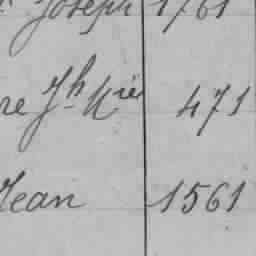 Joseph 1761
re Jh Mie 471
Jean 1561